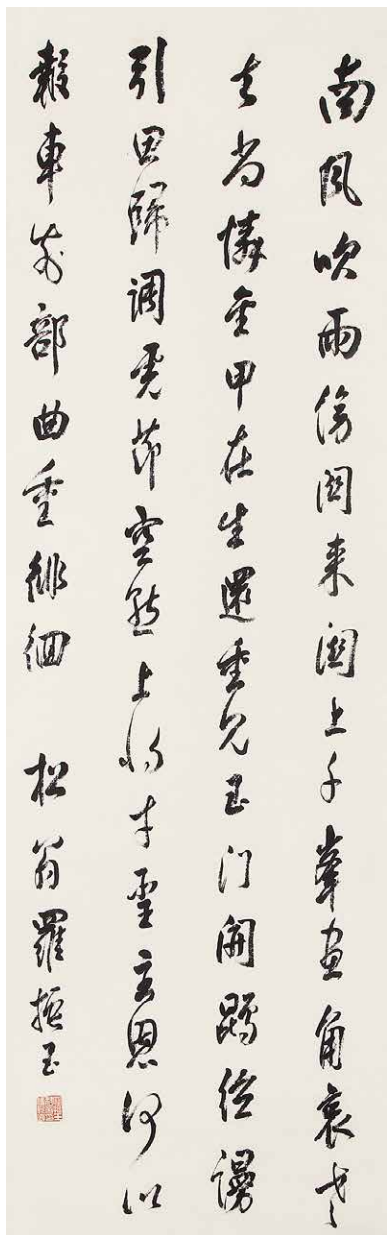 南風吹雨傍關來關上千峯畫角哀老
去尚憐金甲在生還重見玉門開鵾弦謾
引思歸調虎節空慙上將才聖主恩何以
報車前部曲重徘徊 松翁羅振玉